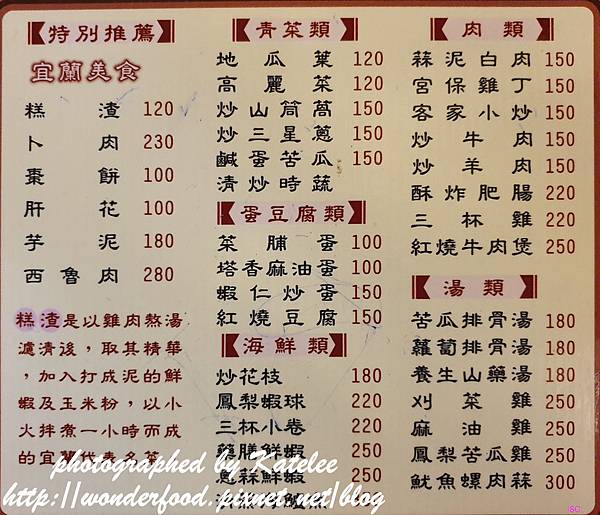 特別推薦
宜蘭美食
糕渣 120
卜肉 230
棗餅 100
肝花 100
芋泥 180
西魯肉 280
糕渣是以雞肉熬湯
濾清後，取其精華
，加入打成泥的鮮
蝦及玉米粉，以小
火拌煮一小時而成
的宜蘭代表名菜
青菜類
地瓜葉 120
高麗菜 120
炒山茼萵 150
炒三星蔥 150
鹹蛋苦瓜 150
清炒時蔬
蛋豆腐類
菜脯蛋 100
塔香麻油蛋 100
蝦仁炒蛋 150
紅燒豆腐 150
海鮮類
炒花枝 180
鳳梨蝦球 220
三杯小卷 220
藥膳鮮蝦 250
蔥蒜鮮蝦 250
肉類
蒜泥白肉 150
宮保雞丁 150
客家小炒 150
炒牛肉 150
炒羊肉 150
酥炸肥腸 220
三杯雞 220
紅燒牛肉煲 250
湯類
苦瓜排骨湯 180
蘿蔔排骨湯 180
養生山藥湯 180
刈菜雞 250
麻油雞 250
鳳梨苦瓜雞 250
魷魚螺肉蒜 300
photographed by Katelee
http://wonderfood.pixnet.net/blog